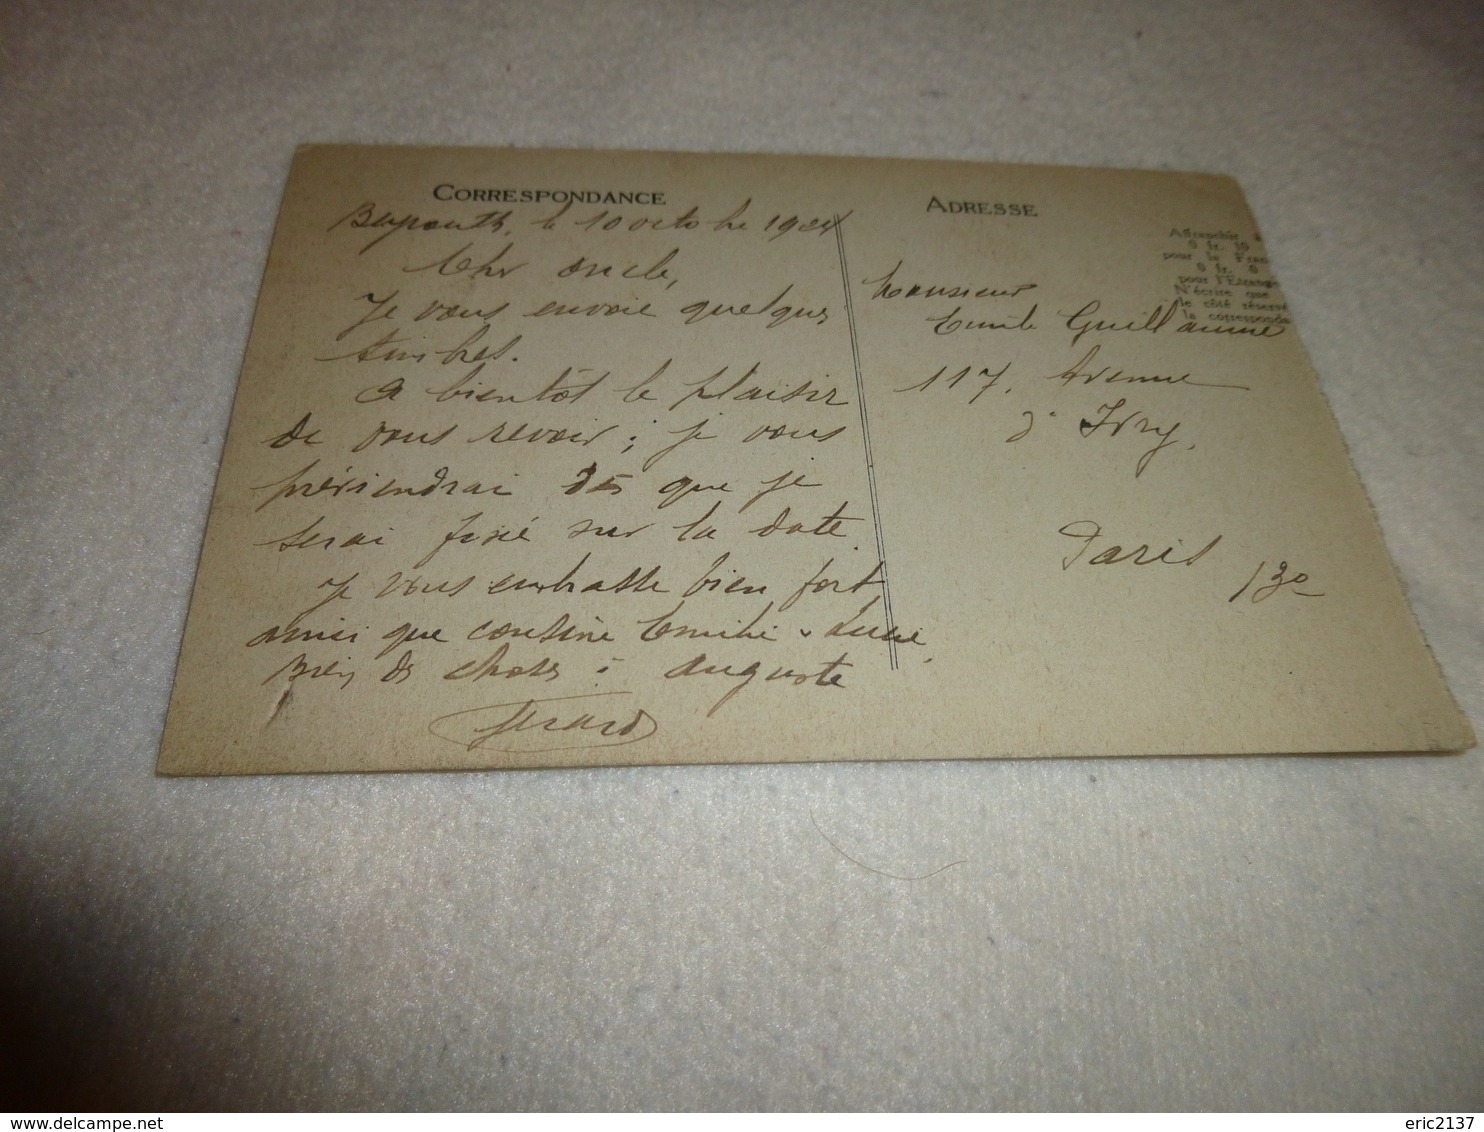 CORRESPONDANCE
Beyrouth, le 10 octobre 1924
Cher oncle,
Je vous envoie quelques
timbres.
A bientôt le plaisir
de vous revoir ; je vous
préviendrai dès que je
serai fixé sur la date.
Je vous embrasse bien fort
ainsi que cousine Emilie & Lucie.
Bien des choses à Auguste
Gérard
ADRESSE
Affranchir à
0 fr. 10
pour la Fran
0 fr.
pour l'Etrange
N'écrire que
le côté réserv
la corresponda
Monsieur
Emile Guillaume
117, Avenue
d'Ivry.
Paris 13e
delcampe.net
eric2137